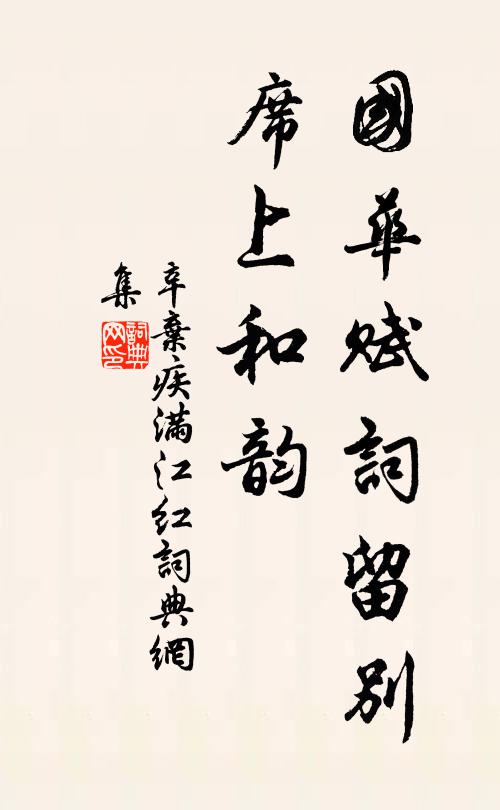 國華賦詞留別
席上和韵
辛棄疾滿江紅詞典網
集
詞典网印